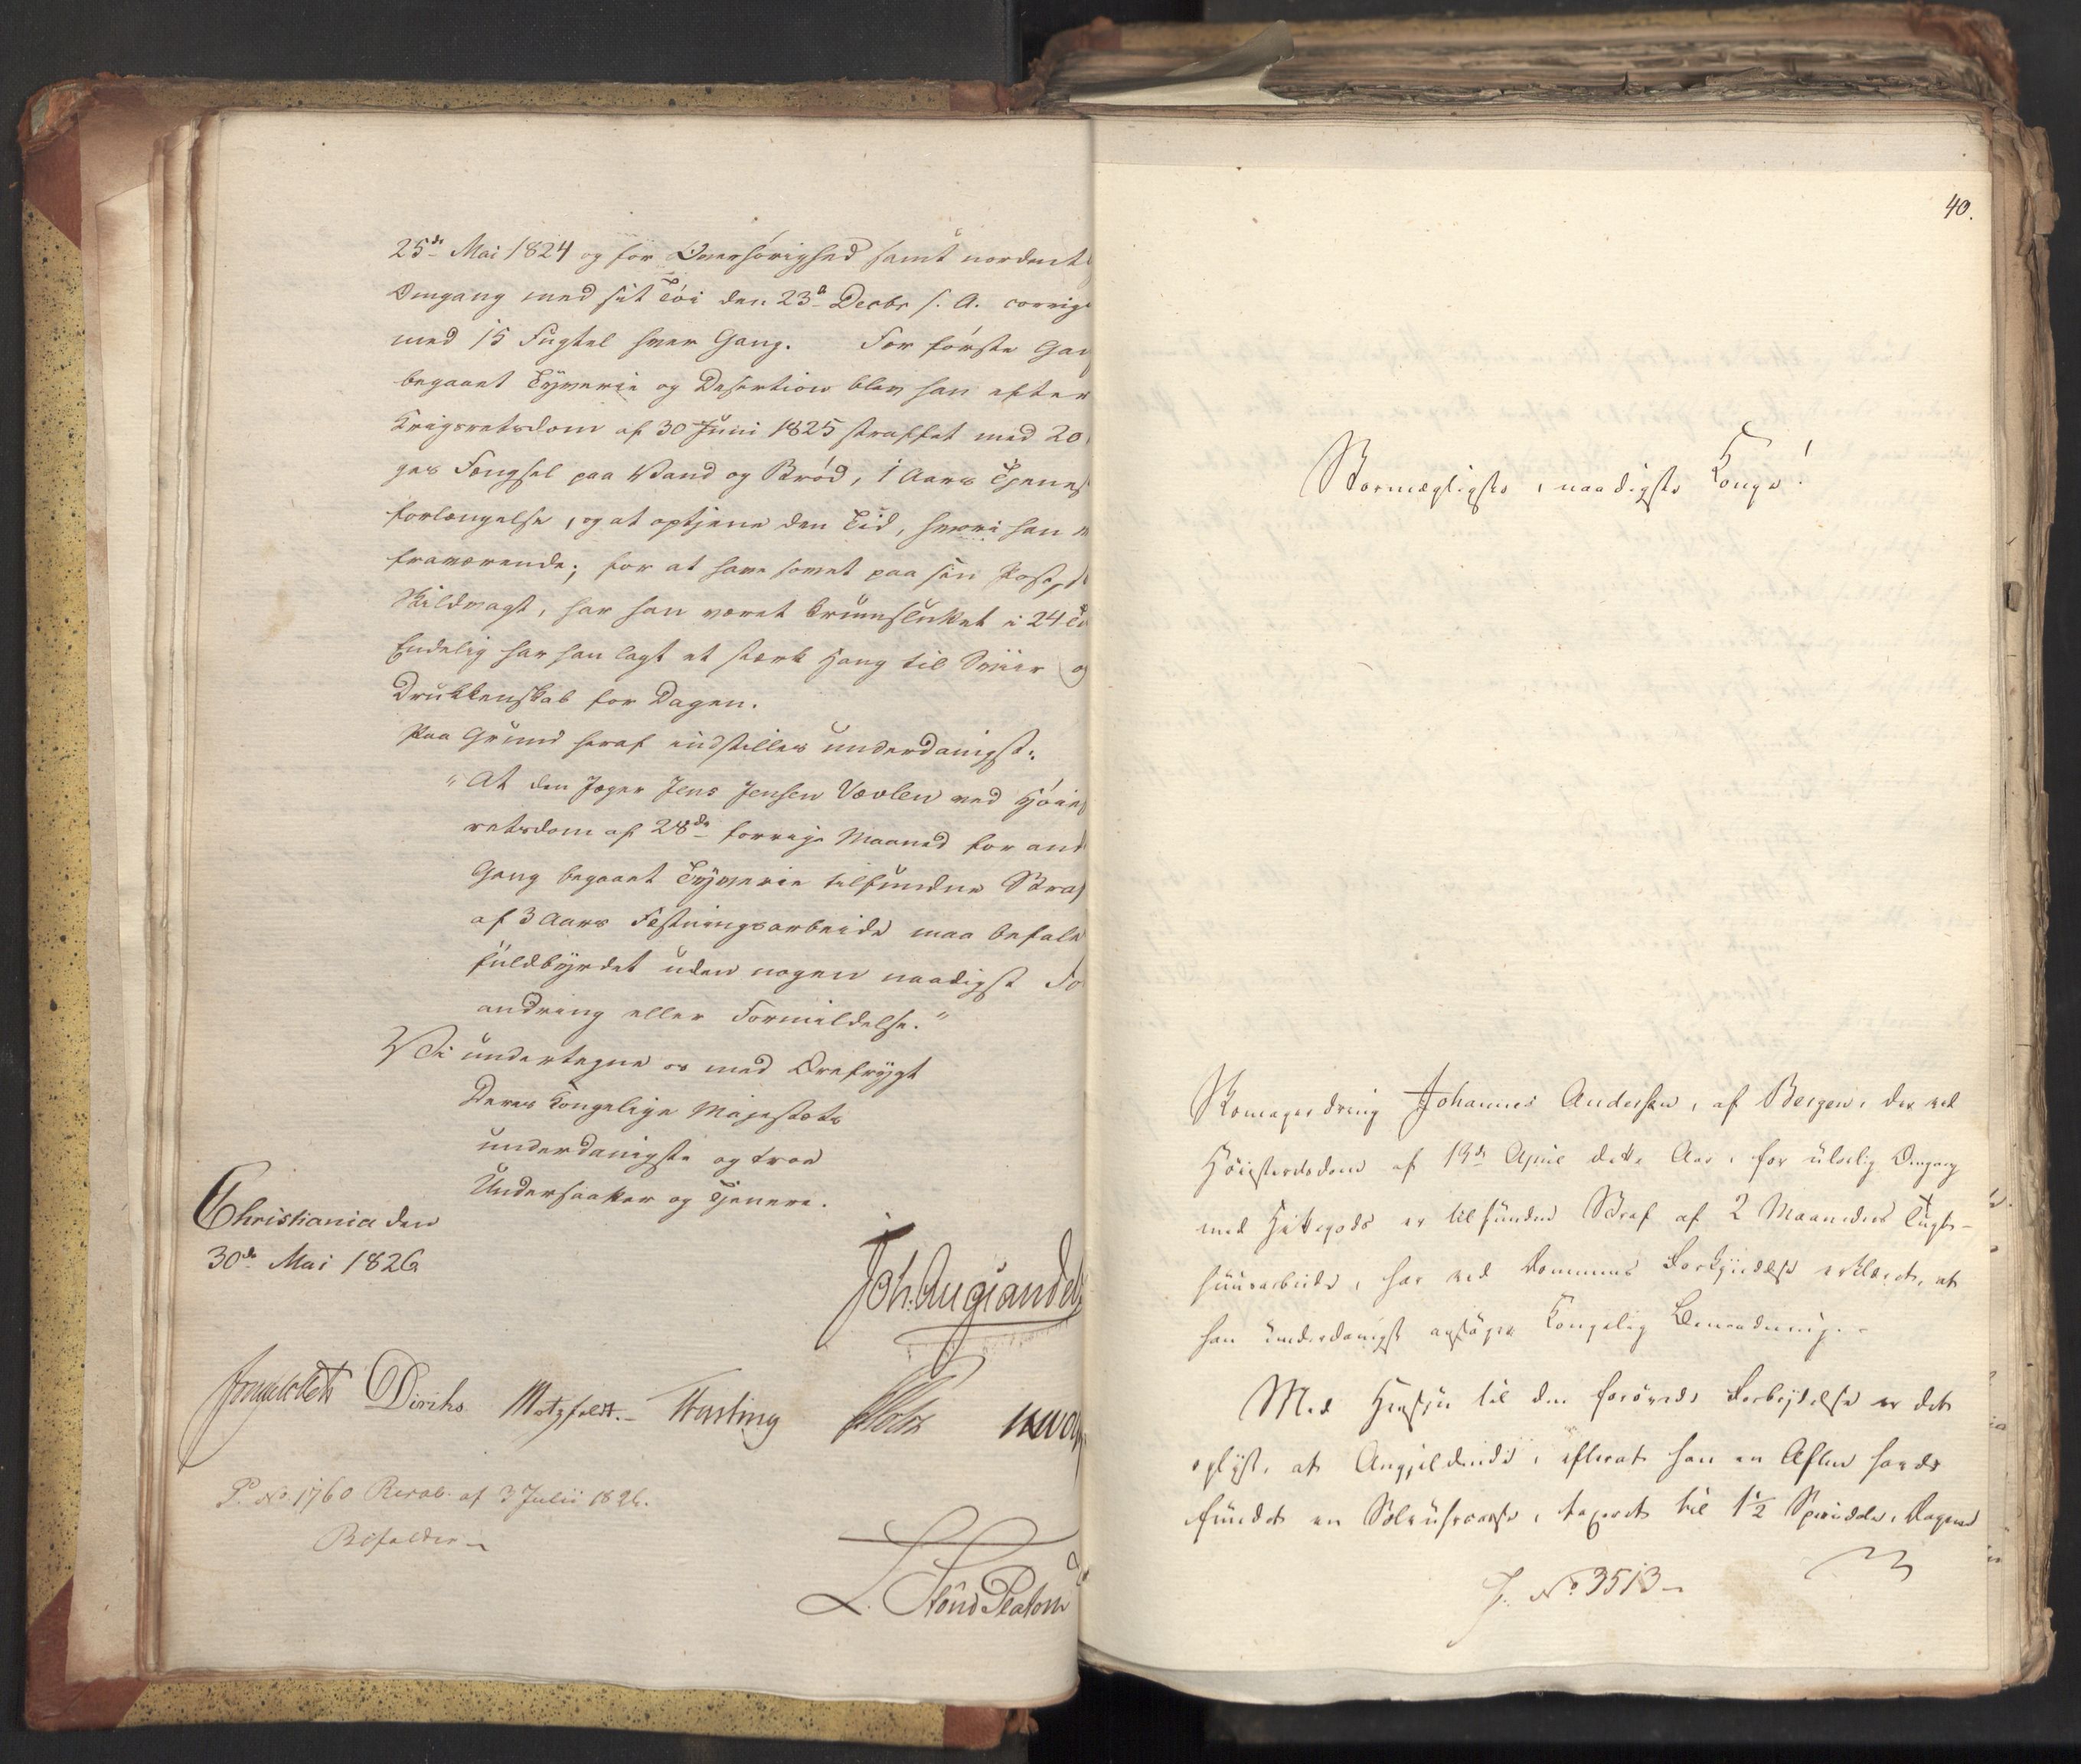 25de Mai 1824 og for Overhørighed samt uordent
Omgang med sit Tøi den 23de Decbr s. A. corrige
med 15 Fugtel hver Gang. For første Gan
begaaet Tyverie og Desertion blev han efter
Krigsretsdom af 30 Juni 1825 straffet med 20
ges Fængsel paa Vand og Brød, 1 Aars Tjenes
forlængelse, og at optjene den Tid, hvori han
fraværende; for at have sovet paa sin Post, 
Skildvagt, har han været krumsluttet i 24 Ti
Endelig har han lagt et stærk Hang til Sviir og
Drukkenskab for Dagen.
Paa Grund heraf indstilles underdanigst:
"At den Jæger Jens Jensen Vævlen ved Høies
retsdom af 28de forrige Maaned for and
Gang begaaet Tyverie tilfundne Straf
af 3 Aars Fæstningsarbeide maa befale
fuldbyrdet uden nogen naadigst Fo
andring eller Formildelse."
Vi undertegne os med Ærefrygt
Deres Kongelige Majestæts
underdanigste og troe
Undersaatter og Tjenere.
Christiania den
30de Mai 1826
Joh. Aug. Sandels
Diriks Motzfeldt. Fasting
P. No 1760 Resol. af 3 Julii 1826.
Bifaldes
40.
Stormægtigste, naadigste Konge!
Skomagerdreng Johannes Andersen, af Bergen, der ved
Høiesteretsdom af 19de April dette Aar, for ulovlig Omgang
med Hittegods er tilfunden Straf af 2 Maaneders Tugt-
huusarbeide, har ved Dommens Forkyndelse erklæret, at
han underdanigst ansøger Kongelig Benaadning.
Med Hensyn til den forøvede Forbrydelse er det
oplyst, at Angjeldende, efterat han en Aften havde
fundet en Sølv, taxeret til 1½ Speciedaler, Dagen
J. No 3513